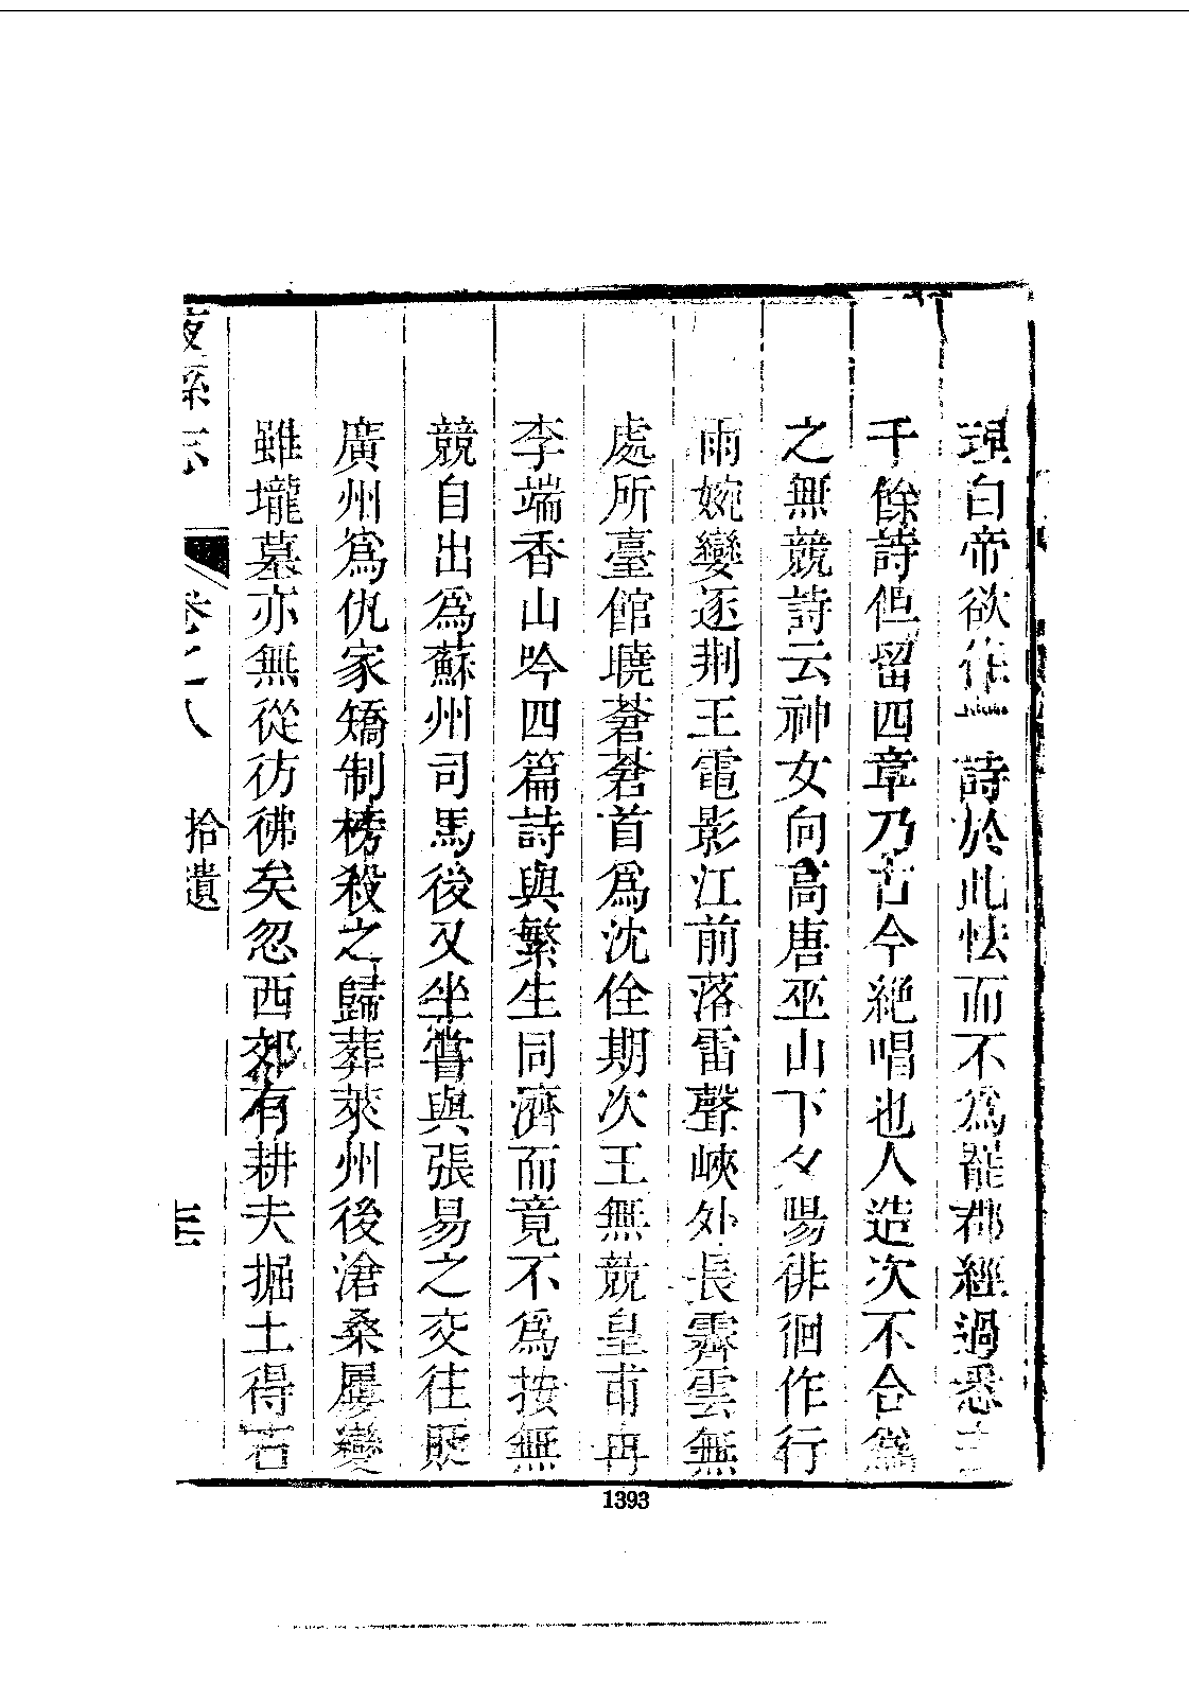 理白帝欲作一詩於此怯而不為罷郡經過悉去
千餘詩但留四章乃古今絕唱也人造次不合為
之無競詩云神女向高唐巫山下夕陽徘徊作行
雨婉孌逐荆王電影江前落雷聲峽外長霽雲無
處所臺館曉蒼蒼首為沈佺期次王無競皇甫冉
李端香山吟四篇詩與繁生同濟而竟不為按無
競自出為蘇州司馬後又坐嘗與張易之交往貶
廣州為仇家矯制榜殺之歸葬萊州後滄桑屢變
雖壠墓亦無從彷彿矣忽西郊有耕夫掘土得石
縣志 卷之八 拾遺
1393